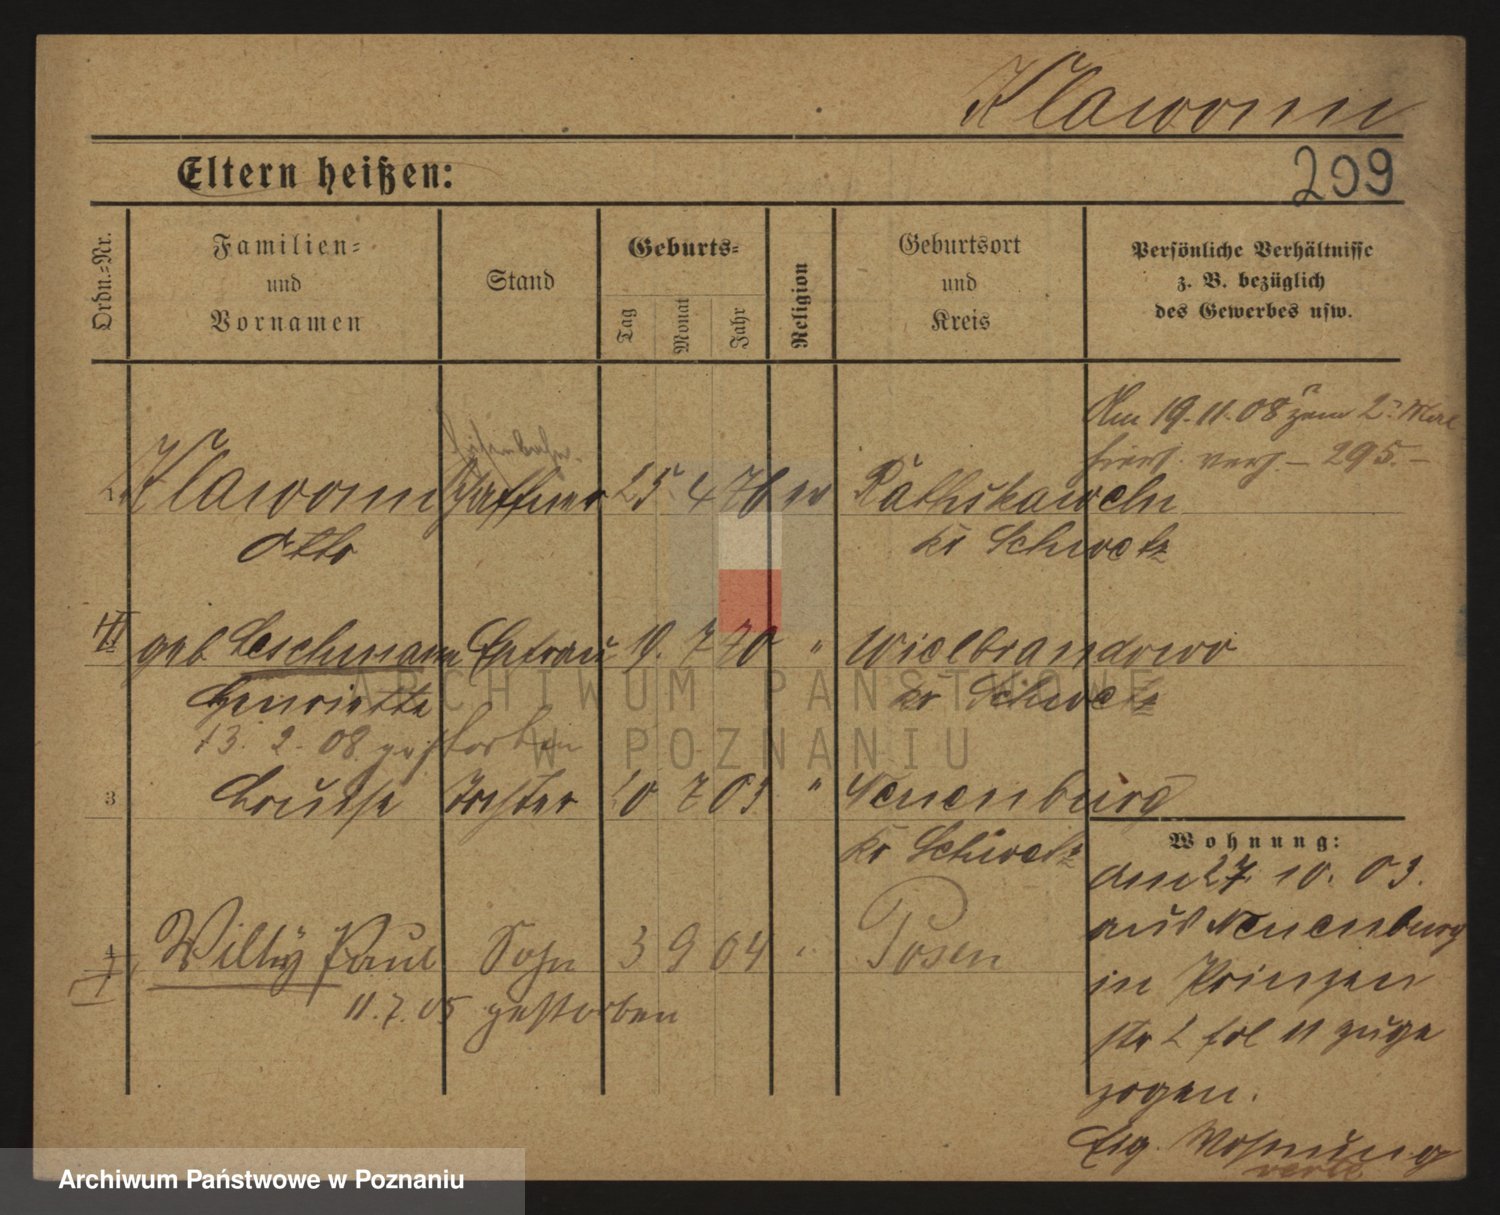 Klawonn
Eltern heißen:
209
Ordn.-Nr.
Familien-
und
Vornamen
Stand
Geburts-
Tag
Monat
Jahr
Religion
Geburtsort
und
Kreis
Persönliche Verhältnisse
z. B. bezüglich
des Gewerbes usw.
Am 19.11.08 zum 2. Mal
verh. – 295. –
Eisenbahn-
1 Klawonn Schaffner 25 4 76 ev
Otto
kr Schwetz
II geb Leschmann Ehefrau 19. 7 70 " Wielbrandowo
Henriette kr Schwetz
13. 2. 08 gestorben
ARCHIWUM PAŃSTWOWE
W POZNANIU
3 Louise Tochter 20 7 03 " Neuenburg
kr Schwetz
Wohnung:
am 27. 10. 03.
aus Neuenburg
in Prinzen
str 2 fol 11 zuge
zogen.
Eig. Wohnung
4 Willy Paul Sohn 3 9 04 " Posen
11. 7. 05 gestorben
Archiwum Państwowe w Poznaniu